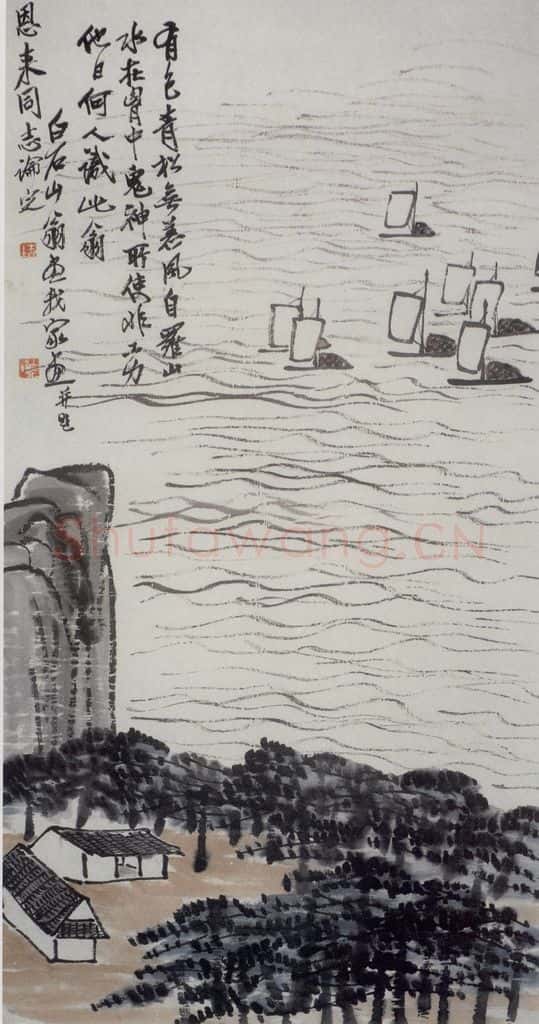 有色青松無風自羅山
水在胷中鬼神所使非工力
他日何人識此翁
白石山翁畫我家畫并題
恩来同志論定
Shufawang.CN